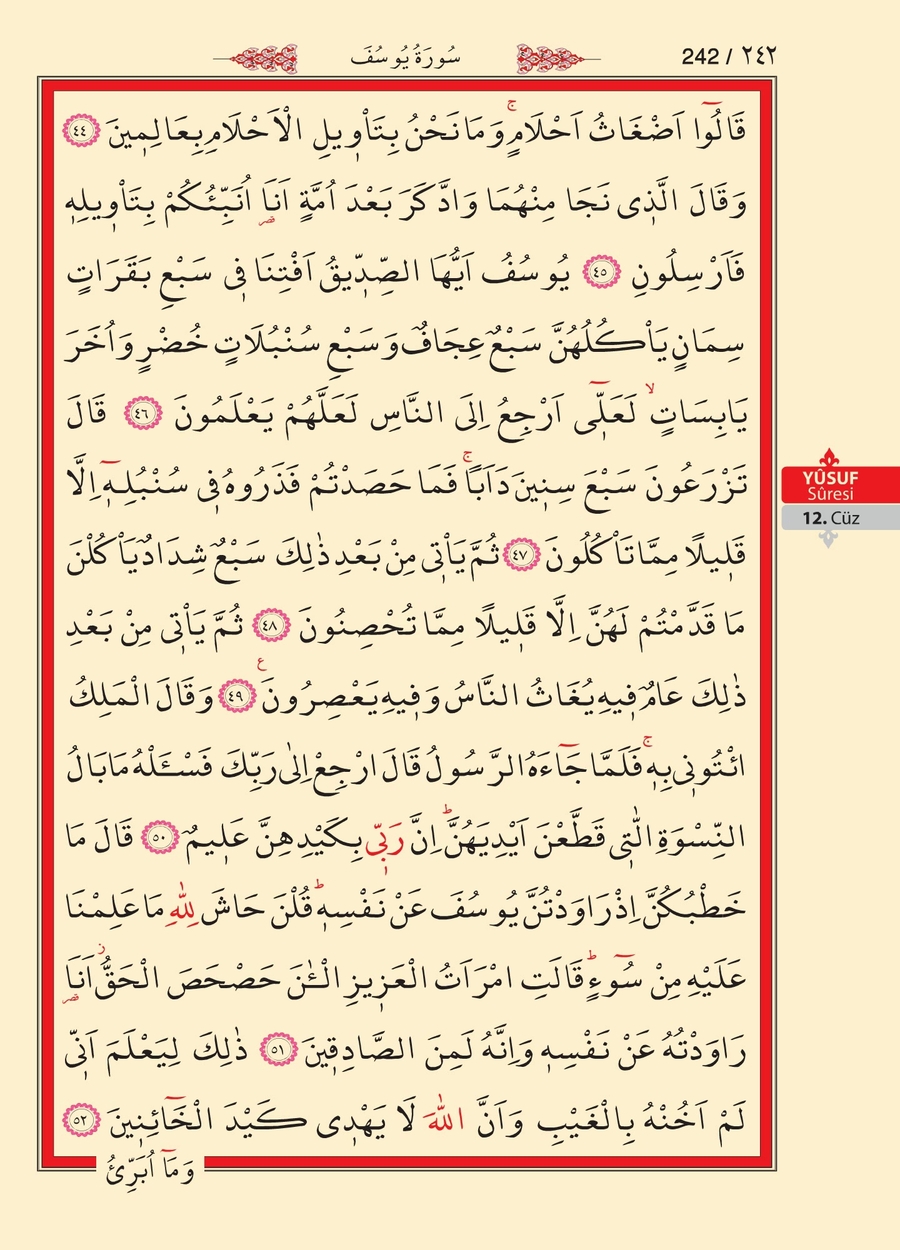 سُورَةُ يُوسُفَ
242 / ٢٤٢
قَالُٓوا اَضْغَاثُ اَحْلَامٍۚ وَمَا نَحْنُ بِتَأْو۪يلِ الْاَحْلَامِ بِعَالِم۪ينَ ﴿٤٤﴾
وَقَالَ الَّذ۪ى نَجَا مِنْهُمَا وَادَّكَرَ بَعْدَ اُمَّةٍ اَنَا۬ اُنَبِّئُكُمْ بِتَأْو۪يلِه۪
فَاَرْسِلُونِ ﴿٤٥﴾ يُوسُفُ اَيُّهَا الصِّدّ۪يقُ اَفْتِنَا ف۪ى سَبْعِ بَقَرَاتٍ
سِمَانٍ يَأْكُلُهُنَّ سَبْعٌ عِجَافٌ وَسَبْعِ سُنْبُلَاتٍ خُضْرٍ وَاُخَرَ
يَابِسَاتٍۙ لَعَلّ۪ٓى اَرْجِعُ اِلَى النَّاسِ لَعَلَّهُمْ يَعْلَمُونَ ﴿٤٦﴾ قَالَ
تَزْرَعُونَ سَبْعَ سِن۪ينَ دَاَبًاۚ فَمَا حَصَدْتُمْ فَذَرُوهُ ف۪ى سُنْبُلِه۪ٓ اِلَّا
قَل۪يلًا مِمَّا تَأْكُلُونَ ﴿٤٧﴾ ثُمَّ يَأْت۪ى مِنْ بَعْدِ ذٰلِكَ سَبْعٌ شِدَادٌ يَأْكُلْنَ
مَا قَدَّمْتُمْ لَهُنَّ اِلَّا قَل۪يلًا مِمَّا تُحْصِنُونَ ﴿٤٨﴾ ثُمَّ يَأْت۪ى مِنْ بَعْدِ
ذٰلِكَ عَامٌ ف۪يهِ يُغَاثُ النَّاسُ وَف۪يهِ يَعْصِرُونَ ع ﴿٤٩﴾ وَقَالَ الْمَلِكُ
ائْتُون۪ى بِه۪ۚ فَلَمَّا جَٓاءَهُ الرَّسُولُ قَالَ ارْجِعْ اِلٰى رَبِّكَ فَسْـَٔلْهُ مَا بَالُ
النِّسْوَةِ الّٰت۪ى قَطَّعْنَ اَيْدِيَهُنَّۜ اِنَّ رَبّ۪ى بِكَيْدِهِنَّ عَل۪يمٌ ﴿٥٠﴾ قَالَ مَا
خَطْبُكُنَّ اِذْ رَاوَدْتُنَّ يُوسُفَ عَنْ نَفْسِه۪ۜ قُلْنَ حَاشَ لِلّٰهِ مَا عَلِمْنَا
عَلَيْهِ مِنْ سُٓوءٍۜ قَالَتِ امْرَاَتُ الْعَز۪يزِ الْـٰٔنَ حَصْحَصَ الْحَقُّۘ اَنَا۬
رَاوَدْتُهُ عَنْ نَفْسِه۪ وَاِنَّهُ لَمِنَ الصَّادِق۪ينَ ﴿٥١﴾ ذٰلِكَ لِيَعْلَمَ اَنّ۪ى
لَمْ اَخُنْهُ بِالْغَيْبِ وَاَنَّ اللّٰهَ لَا يَهْد۪ى كَيْدَ الْخَٓائِن۪ينَ ﴿٥٢﴾
وَمَٓا اُبَرِّئُ
YÛSUF
Sûresi
12. Cüz